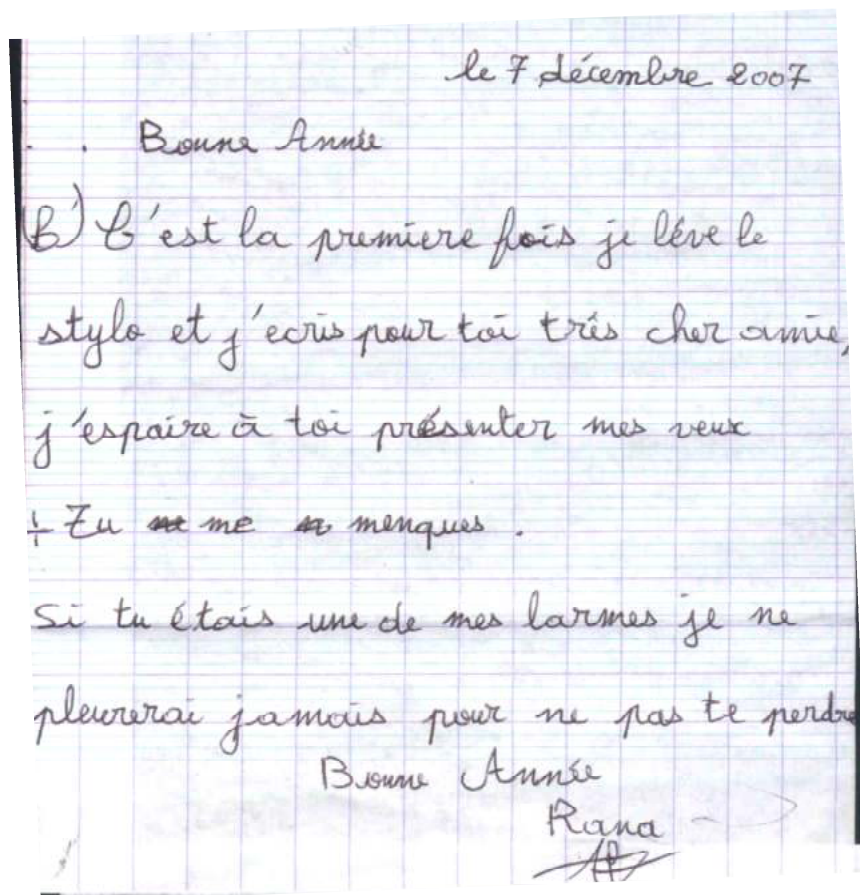 le 7 décembre 2007
Bonne Année
(B) C'est la premiere fois je léve le
stylo et j'ecris pour toi trés cher amie,
j'espaire à toi présenter mes veux
+ Tu me menques.
Si tu étais une de mes larmes je ne
pleurerai jamais pour ne pas te perdre
Bonne Année
Rana